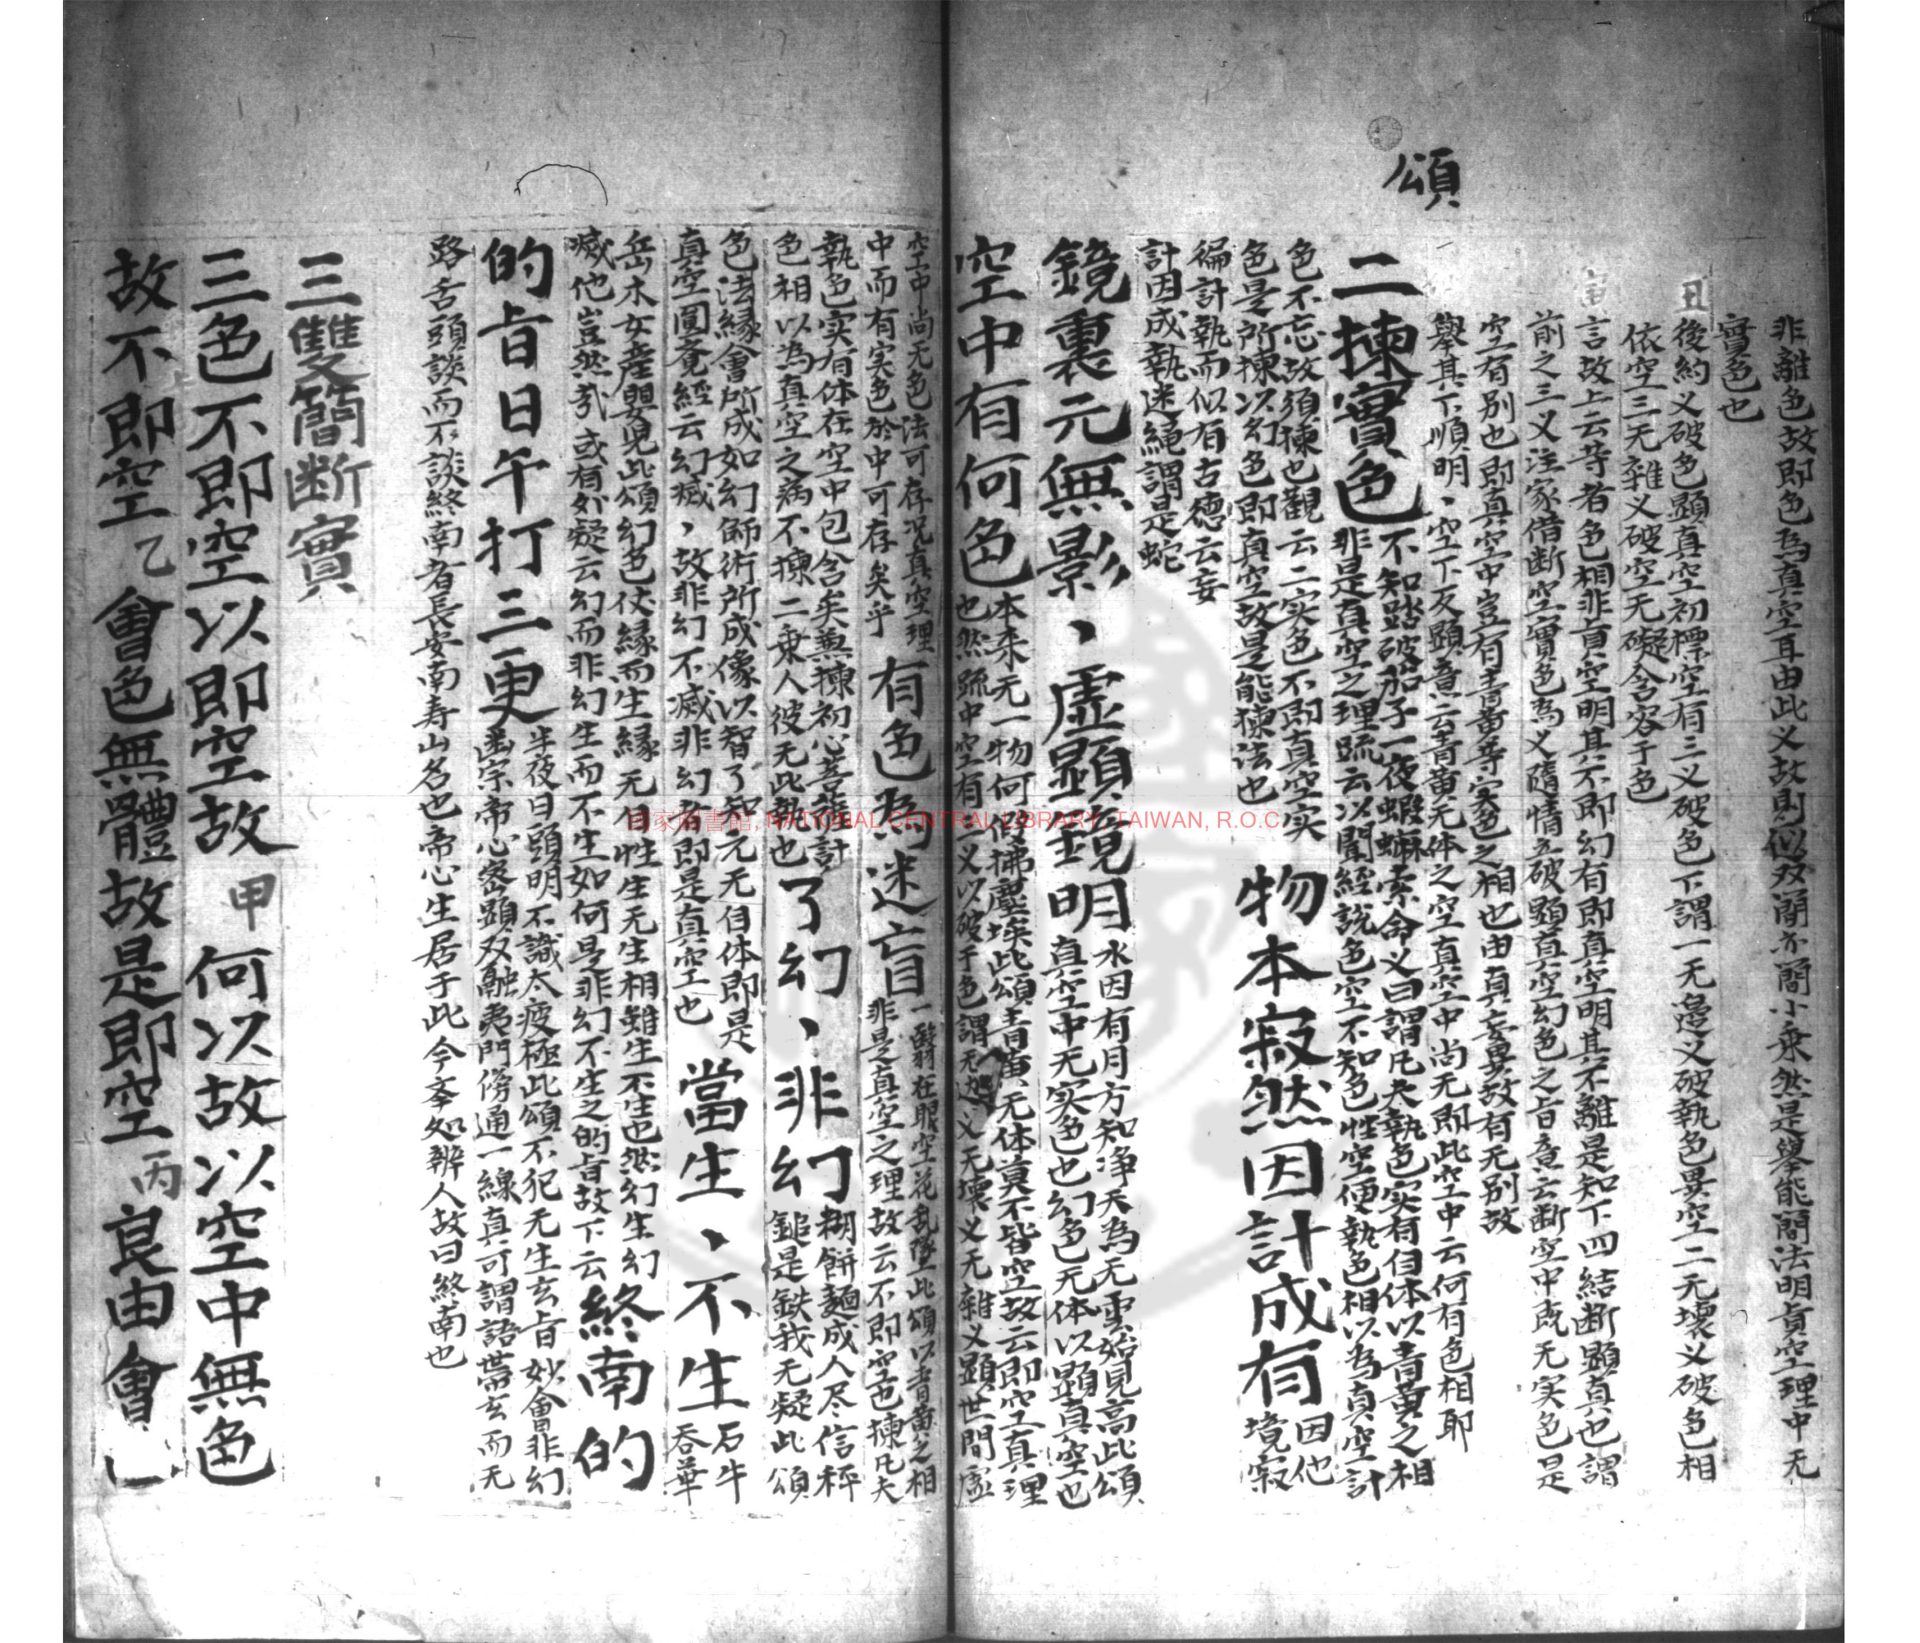 頌
非離色故即色為真空耳由此义故則似双簡亦簡小乘然是舉能簡法明真空理中无
實色也
丑
後約义破色顯真空初標空有三义破色下謂一无邊义破執色異空二无壞义破色相
依空三无雜义破空无礙含容于色
言故上云等者色相非真空明其不即幻有即真空明其不離是知下四結断顯真也謂
前之三义注家借断空實色為义隨情立破顯真空幻色之旨意云断空中既无实色是
空有别也即真空中豈有青黃等实色之相也由真妄異故有无别故
舉其下順明、空下反顯意云青黃无体之空真空中尚无即此空中云何有色相耶
二揀實色
不知踏破茄子一夜蝦蟆索命义曰謂凡夫執色实有自体以青黃之相
非是真空之理疏云以聞經說色空不知色性空便執色相以為真空計
色不忘故須揀也觀云二实色不即真空实
色是所揀以幻色即真空故是能揀法也
物本寂然因計成有
因他
境寂
徧計執而似有古德云妄
計因成執迷繩謂是蛇
鏡裏元無影、虛顯鏡明
水因有月方知净天為无雲始見高此頌
真空中无实色也幻色无体以顯真空也
空中有何色
本来无一物何處拂塵埃此頌青黃无体莫不皆空故云即空真理
也然疏中空有三义以破于色謂无边义无壞义无雜义顯世間虛
空中尚无色法可存况真空理
中而有实色於中可存矣乎
有色為迷盲
一翳在眼空花乱墜此頌以青黃之相
非是真空之理故云不即空也揀凡夫
執色实有体在空中包含矣兼揀初心菩薩計
色相以為真空之病不揀二乗人彼无此執也
了幻、非幻
糊餅麵成人尽信秤
鎚是鉄我无疑此頌
色法緣會所成如幻師術所成像以智了知元无自体即是
真空圓覚經云幻滅、故非幻不滅非幻者即是真空也
當生、不生
石牛
吞華
岳木女產嬰兒此頌幻色仗緣而生緣无自性生无生相雖生不生也然幻生幻
滅他豈然㢤或有如疑云幻而非幻生而不生如何是非幻不生之的旨故下云
終南的
的旨日午打三更
半夜日頭明不識太疲極此頌不犯无生玄旨妙會非幻
幽宗帝心密顯双融夷門傍通一線真可謂語帶玄而无
路舌頭談而不談終南者長安南寿山名也帝心生居于此今本処辨人故曰終南也
三雙簡断實
三色不即空以即空故 甲 何以故以空中無色
故不即空 乙 會色無體故是即空 丙 良由會
國家圖書館, NATIONAL CENTRAL LIBRARY, TAIWAN, R.O.C.